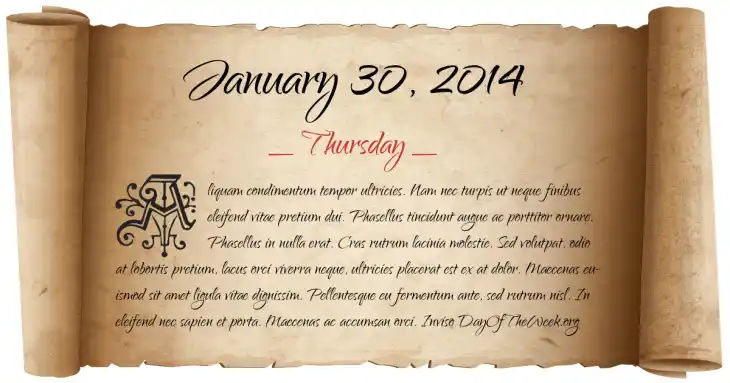 January 30, 2014
_ Thursday _
Aliquam condimentum tempor ultricies. Nam nec turpis ut neque finibus
eleifend vitae pretium dui. Phasellus tincidunt augue ac porttitor ornare.
Phasellus in nulla erat. Cras rutrum lacinia molestie. Sed volutpat, odio
at lobortis pretium, lacus orci viverra neque, ultricies placerat est ex at dolor. Maecenas eu-
ismod sit amet ligula vitae dignissim. Pellentesque eu fermentum ante, sed rutrum nisl. In
eleifend nec sapien et porta. Maecenas ac accumsan orci. Invise DayOfTheWeek.org